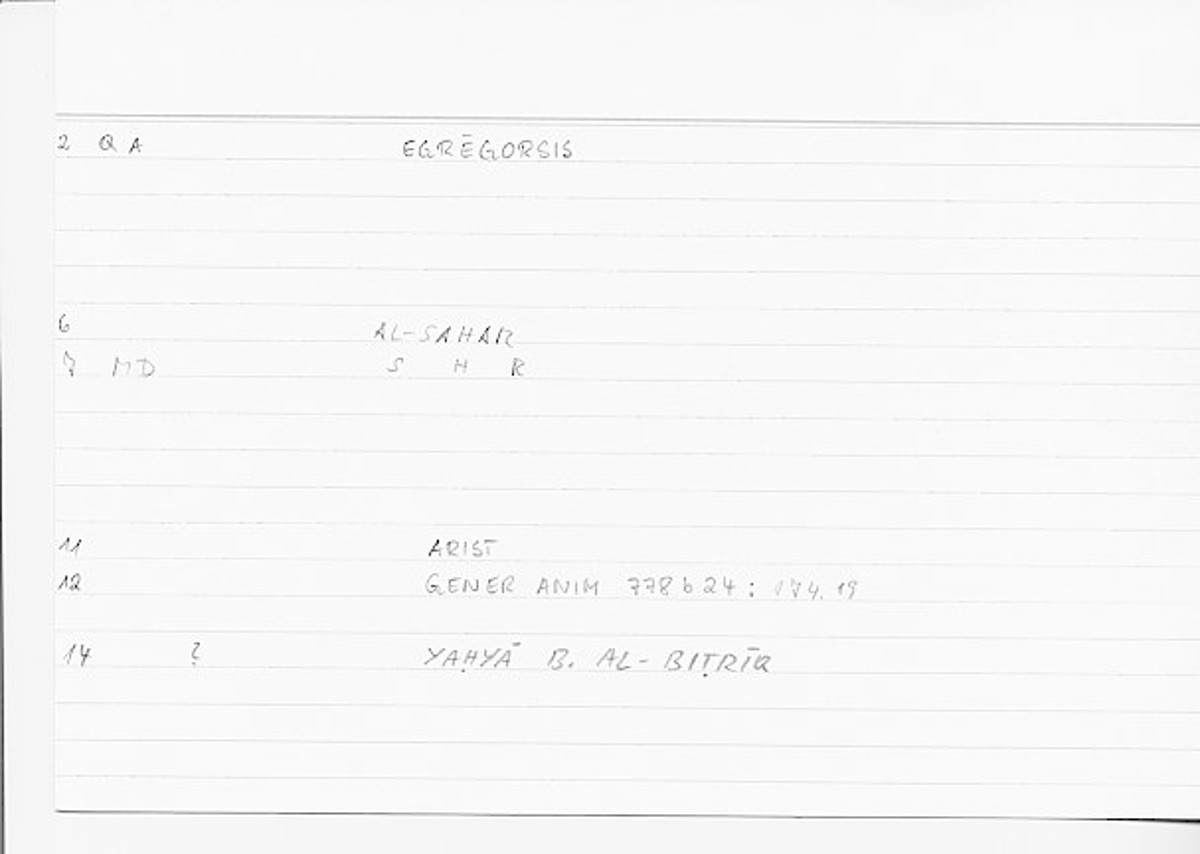 2 Q A EGRĒGORSIS
6 AL-SAHAR
7 MD S H R
11 ARIST
12 GENER ANIM 778 b 24 : 174.19
14 ? YAḤYĀ B. AL-BIṬRĪQ